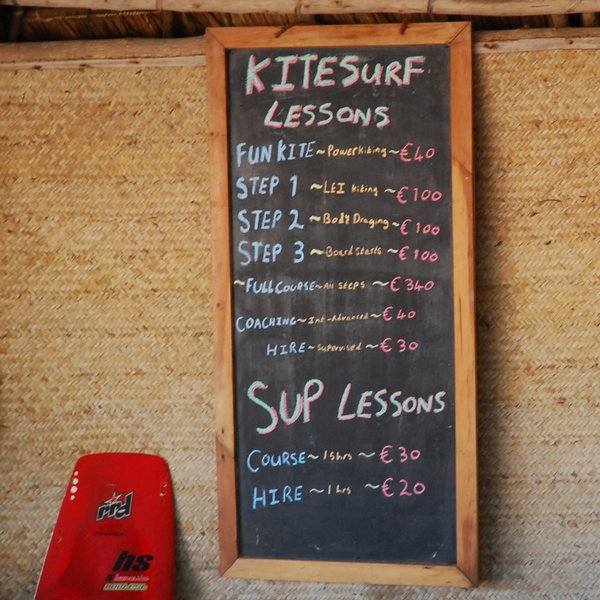 KITESURF
LESSONS
FUN KITE ~ Powerkiting ~ €40
STEP 1 ~ LEI kiting ~ €100
STEP 2 ~ Body Draging ~ €100
STEP 3 ~ Board starts ~ €100
~ FULL COURSE ~ All steps ~ €340
COACHING ~ Int-Advanced ~ €40
HIRE ~ Supervised ~ €30
SUP LESSONS
COURSE ~ 1.5hrs ~ €30
HIRE ~ 1 hrs ~ €20
rrd
hs